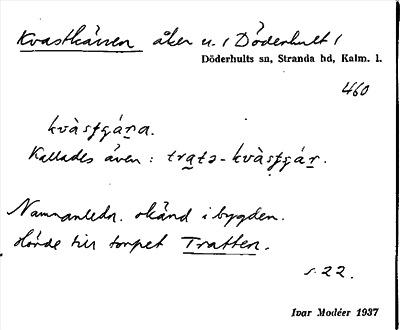 Kvastkärren åker u. (Döderhult)
Döderhults sn, Stranda hd, Kalm. l.
460
kvàsʈgára.
Kallades även: tratə-kvàsʈgár.
Namnanledn. okänd i bygden.
Hörde till torpet Tratten.
s. 22.
Ivar Modéer 1937